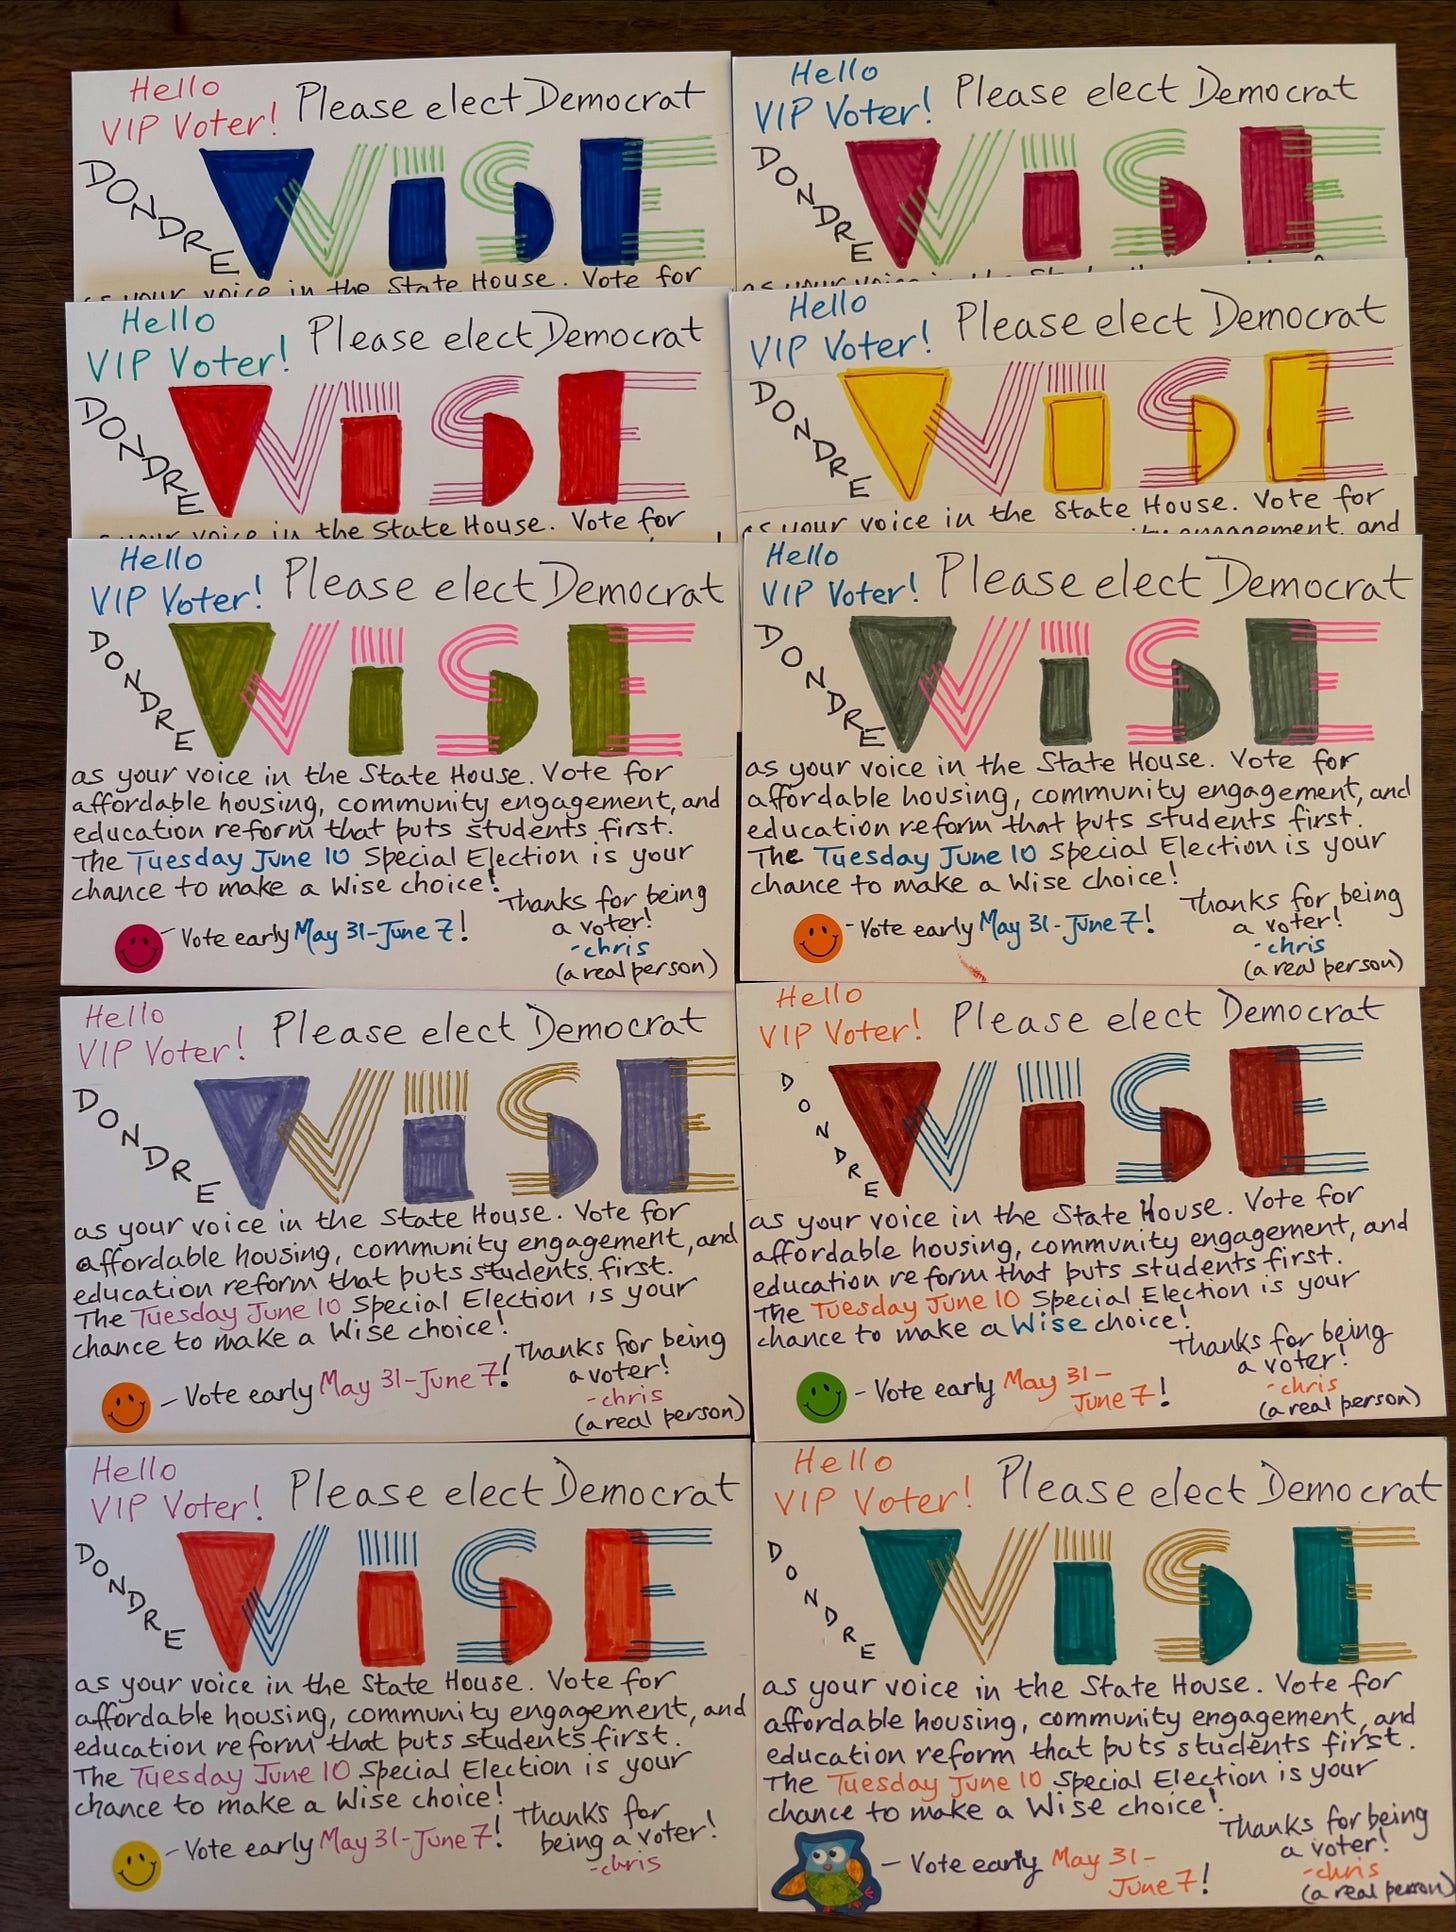 Hello
VIP Voter! Please elect Democrat
DONDRE WISE
as your voice in the State House. Vote for
Hello
VIP Voter! Please elect Democrat
DONDRE WISE
as your voice in the State
Hello
VIP Voter! Please elect Democrat
DONDRE WISE
as your voice in the State House. Vote for
Hello
VIP Voter! Please elect Democrat
DONDRE WISE
as your voice in the State House. Vote for
engagement, and
Hello
VIP Voter! Please elect Democrat
DONDRE WISE
as your voice in the State House. Vote for
affordable housing, community engagement, and
education reform that puts students first.
The Tuesday June 10 Special Election is your
chance to make a Wise choice!
- Vote early May 31-June 7!
Thanks for being
a voter!
-chris
(a real person)
Hello
VIP Voter! Please elect Democrat
DONDRE WISE
as your voice in the State House. Vote for
affordable housing, community engagement, and
education reform that puts students first.
The Tuesday June 10 Special Election is your
chance to make a Wise choice!
- Vote early May 31-June 7!
Thanks for being
a voter!
-chris
(a real person)
Hello
VIP Voter! Please elect Democrat
DONDRE WISE
as your voice in the State House. Vote for
affordable housing, community engagement, and
education reform that puts students first.
The Tuesday June 10 Special Election is your
chance to make a Wise choice!
- Vote early May 31-June 7!
Thanks for being
a voter!
-chris
(a real person)
Hello
VIP Voter! Please elect Democrat
DONDRE WISE
as your voice in the State House. Vote for
affordable housing, community engagement, and
education reform that puts students first.
The Tuesday June 10 Special Election is your
chance to make a Wise choice!
- Vote early May 31-
June 7!
Thanks for being
a voter!
-chris
(a real person)
Hello
VIP Voter! Please elect Democrat
DONDRE WISE
as your voice in the State House. Vote for
affordable housing, community engagement, and
education reform that puts students first.
The Tuesday June 10 Special Election is your
chance to make a Wise choice!
- Vote early May 31-June 7!
Thanks for
being a voter!
-chris
Hello
VIP Voter! Please elect Democrat
DONDRE WISE
as your voice in the State House. Vote for
affordable housing, community engagement, and
education reform that puts students first.
The Tuesday June 10 Special Election is your
chance to make a Wise choice!
- Vote early May 31-
June 7!
Thanks for being
a voter!
-chris
(a real person)